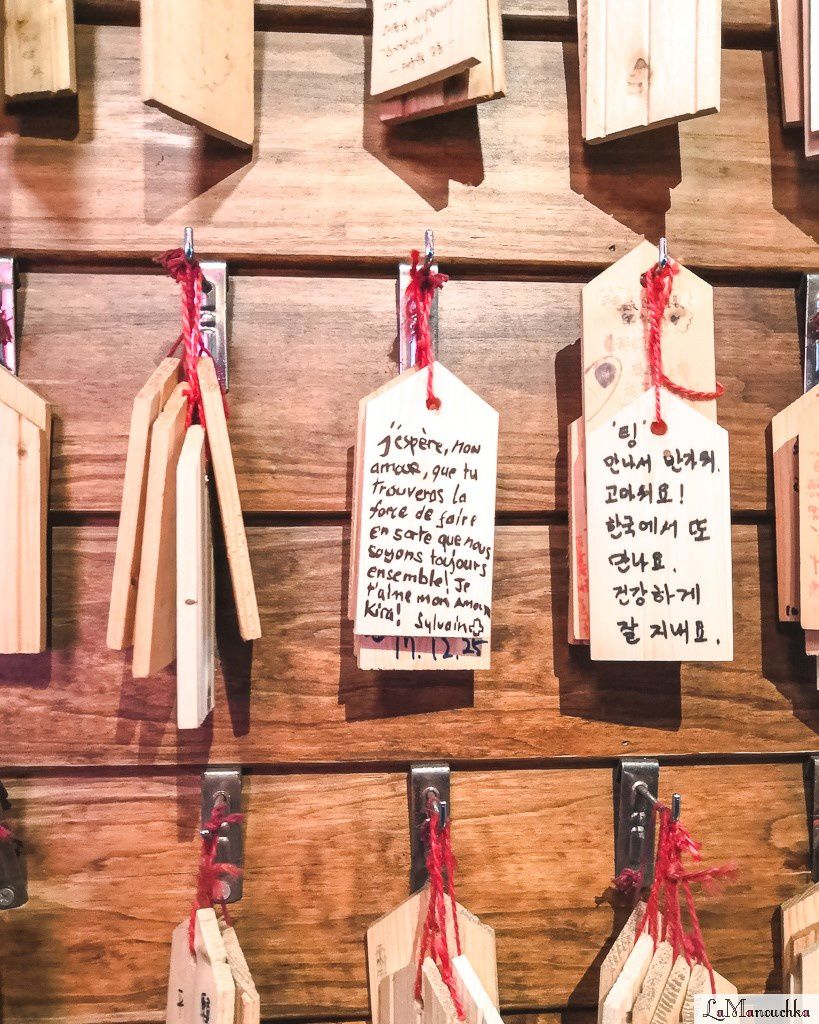 j'espère, mon
amour, que tu
trouveras la
force de faire
en sorte que nous
soyons toujours
ensemble! Je
t'aime mon amour
Kira! Sylvain
17.12.25
'밍'
만나서 반가워.
고마워요!
한국에서 또
만나요.
건강하게
잘 지내요.
LaManouchka